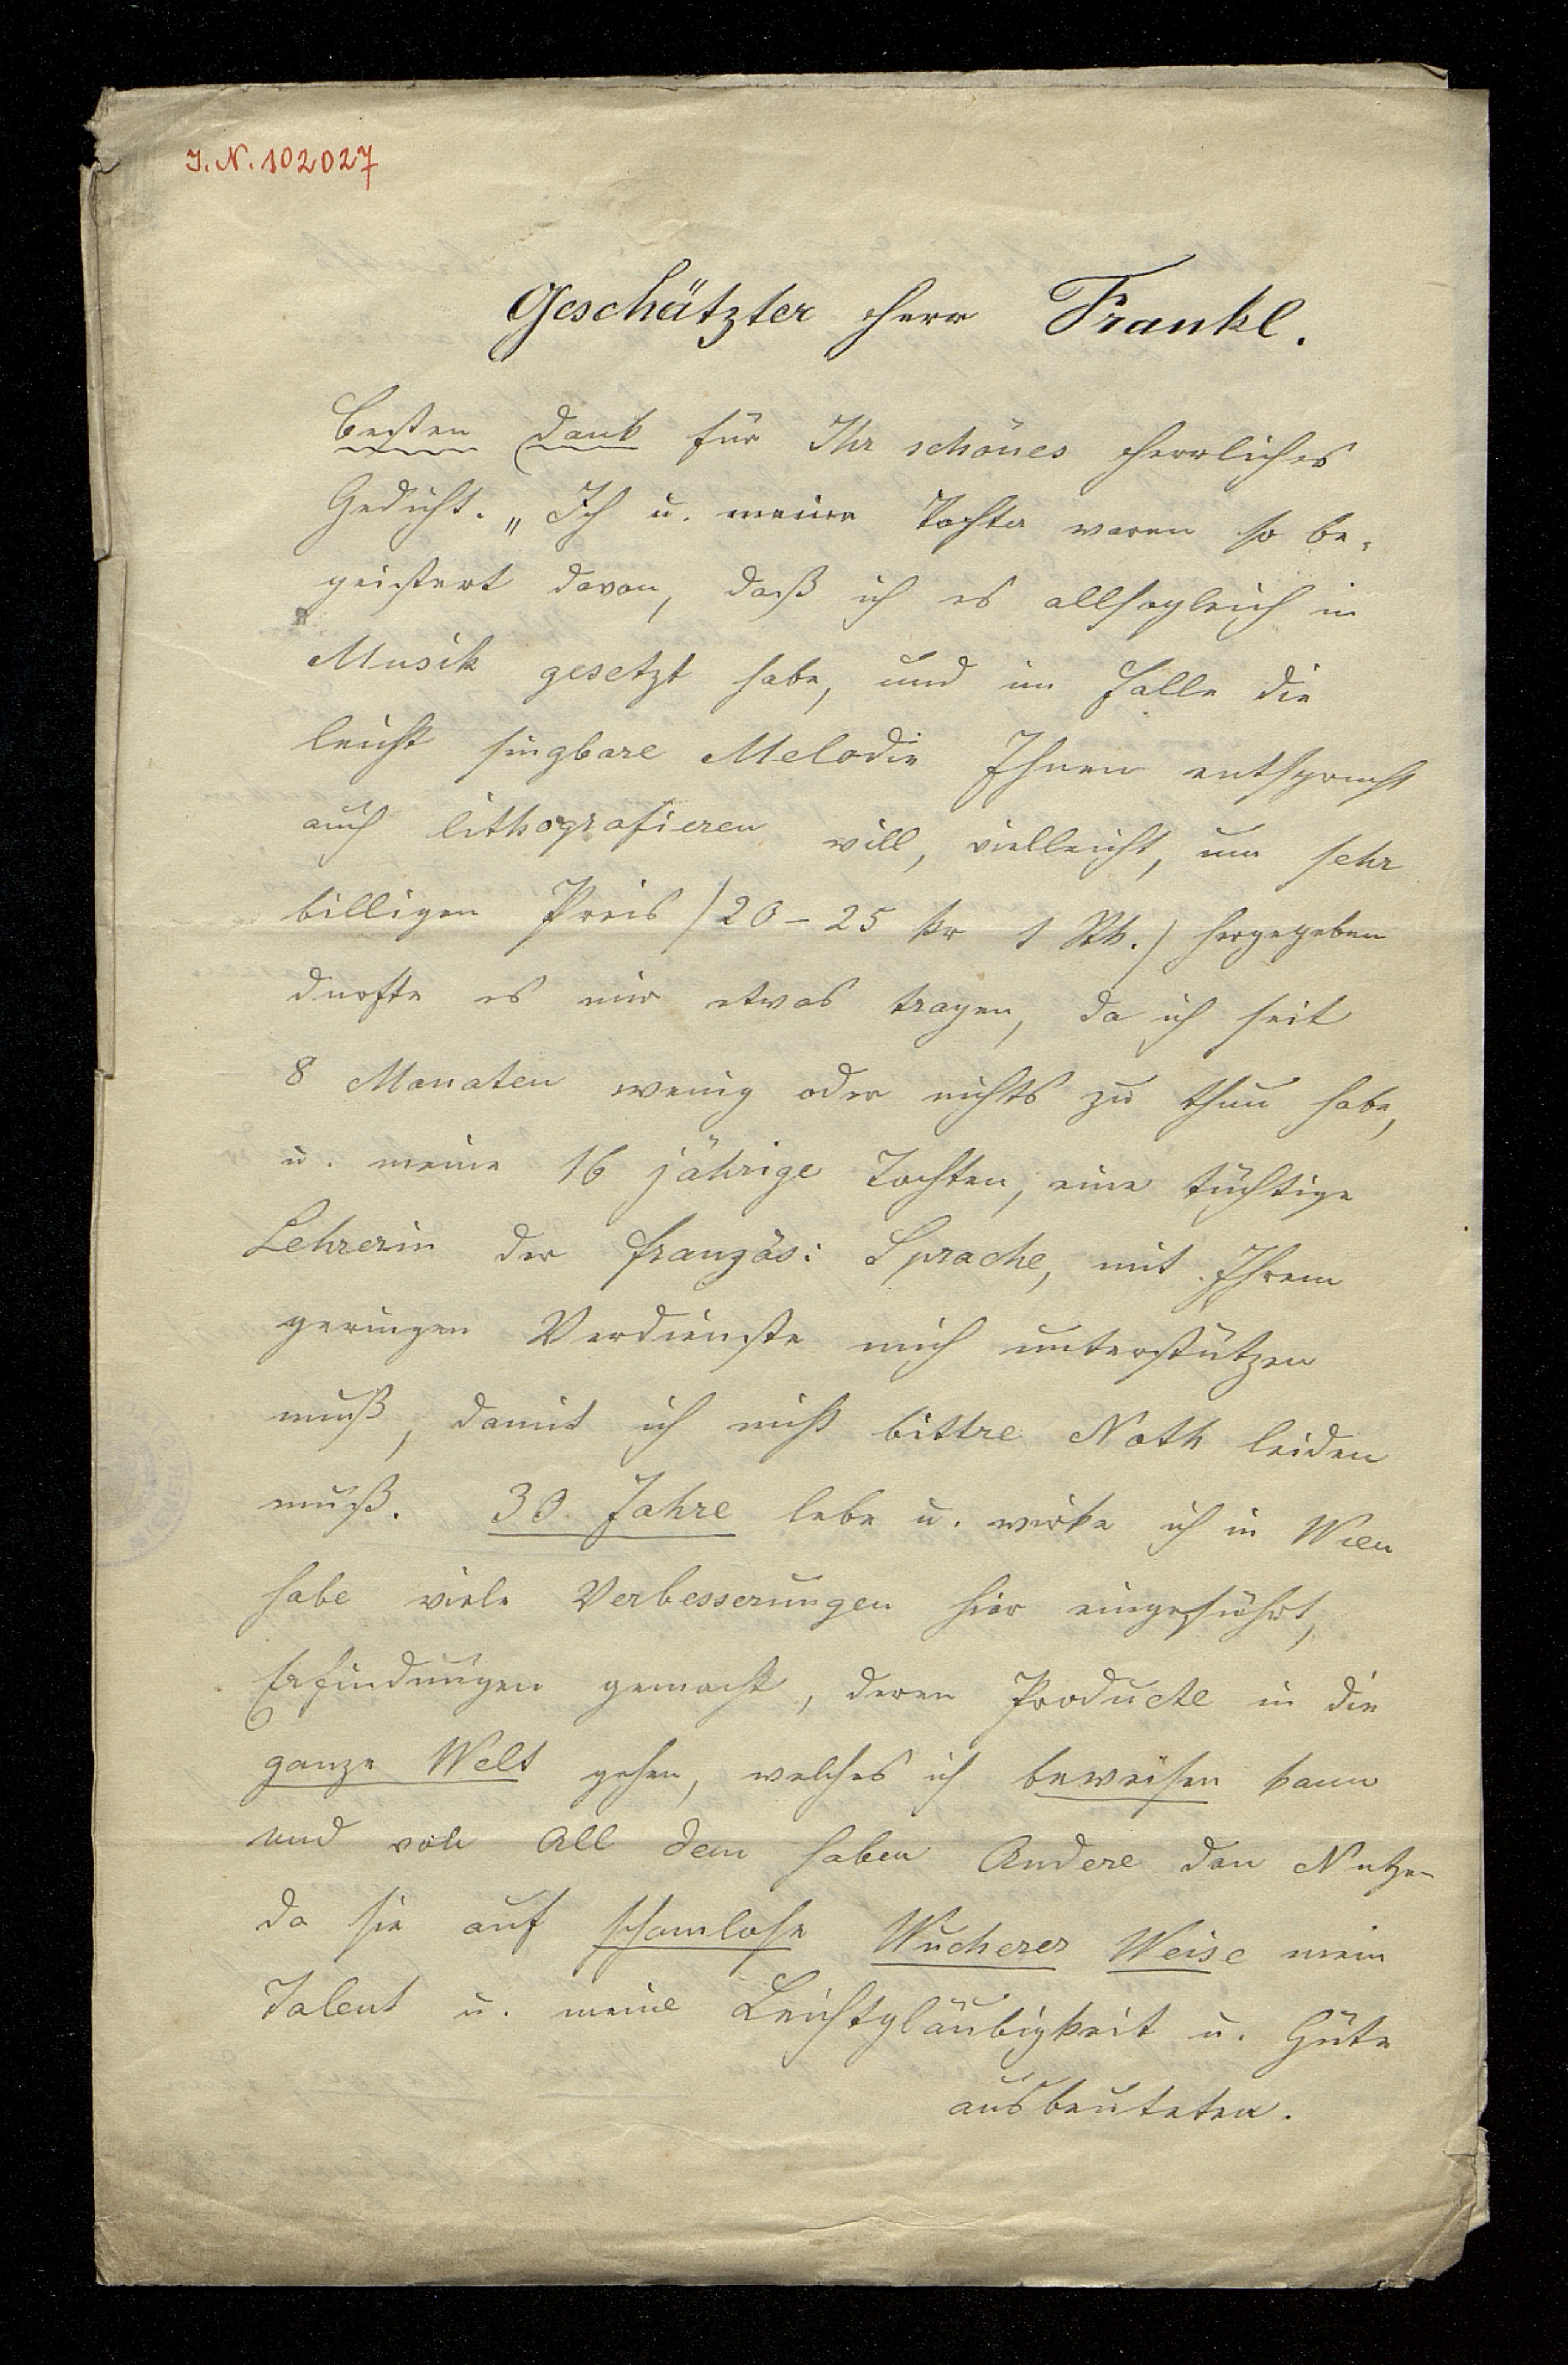 J. N. 102027
Geschätzter Herr Frankl.
Besten Dank für Ihr schönes herrliches
Gedicht. „Ich u. meine Tochter waren so be-
geistert davon, daß ich es allsogleich in
Musik gesetzt habe, und im Falle die
leicht singbare Melodie Ihnen entspricht
auch lithografieren will, vielleicht, um sehr
billigen Preis /20–25 kr 1 Stk./ hergegeben
durfte es mir etwas tragen, da ich seit
8 Monaten wenig oder nichts zu thun habe,
u. meine 16 jährige Tochter, eine tüchtige
Lehrerin der französ: Sprache, mit Ihrem
geringen Verdienste mich unterstützen
muß, damit ich nicht bittre Noth leiden
muß. 30 Jahre lebe u. wirke ich in Wien
habe viele Verbesserungen hier eingeführt,
Erfindungen gemacht, deren Producte in die
ganze Welt gehen, welches ich beweisen kann
und von All dem haben Andere den Nutzen
da sie auf schamlose Wucherer Weise mein
Talent u. meine Leichtgläubigkeit u. Güte
ausbeuteten.